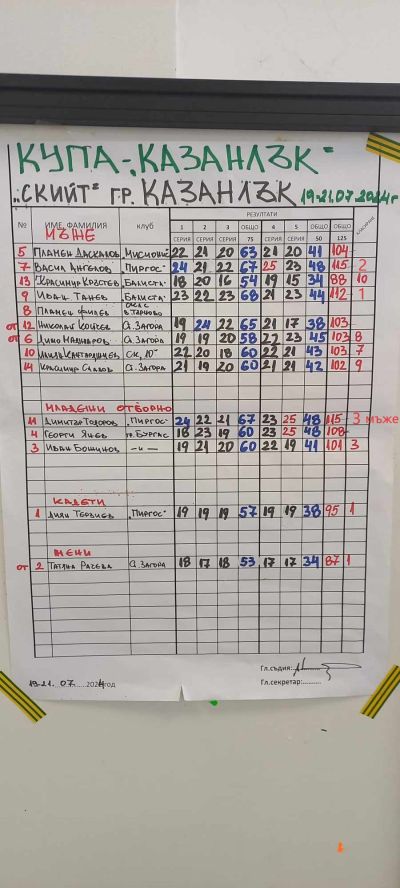 КУПА-"КАЗАНЛЪК"
"СКИЙТ" ГР. КАЗАНЛЪК 19-21.07 2024г
№ ИМЕ, ФАМИЛИЯ клуб РЕЗУЛТАТИ
1 2 3 ОБЩО 4 5 ОБЩО ОБЩО
СЕРИЯ СЕРИЯ СЕРИЯ 75 СЕРИЯ СЕРИЯ 50 125
МЪЖЕ
5 ПЛАМЕН 22 21 20 63 21 20 41 104
7 ВАСИЛ АНГЕЛОВ "ПИРГОС" 24 21 22 67 25 23 48 115 2
13 КРАСИМИР КРЪСТЕВ 18 20 16 54 19 15 34 88 10
9 ИВАН ТАНЕВ 23 22 23 68 21 23 44 112 1
8 ПЛАМЕН В. ТЪРНОВО
от 12 НИКОЛАЙ С. ЗАГОРА 19 24 22 65 21 17 38 103
от 6 ДИМО С. ЗАГОРА 19 19 20 58 22 23 45 103 8
10 22 20 18 60 22 21 43 103 7
14 КРАСИМИР СЛАВОВ С. ЗАГОРА 21 19 20 60 21 21 42 102 9
МЛАДЕЖИ ОТБОРНО
11 ДИМИТЪР ТОДОРОВ "ПИРГОС" 24 22 21 67 23 25 48 115 3 мъже
4 ГЕОРГИ ЯНЕВ гр. БУРГАС 18 23 19 60 23 25 48 108
3 ИВАН БОШНОВ -"- 19 21 20 60 22 19 41 101 3
КАДЕТИ
1 "ПИРГОС" 19 19 19 57 19 19 38 95 1
ЖЕНИ
от 2 ТАТЯНА РАЧЕВА С. ЗАГОРА 18 17 18 53 17 17 34 87 1
Гл.съдия:
19-21. 07. 2024год Гл.секретар: